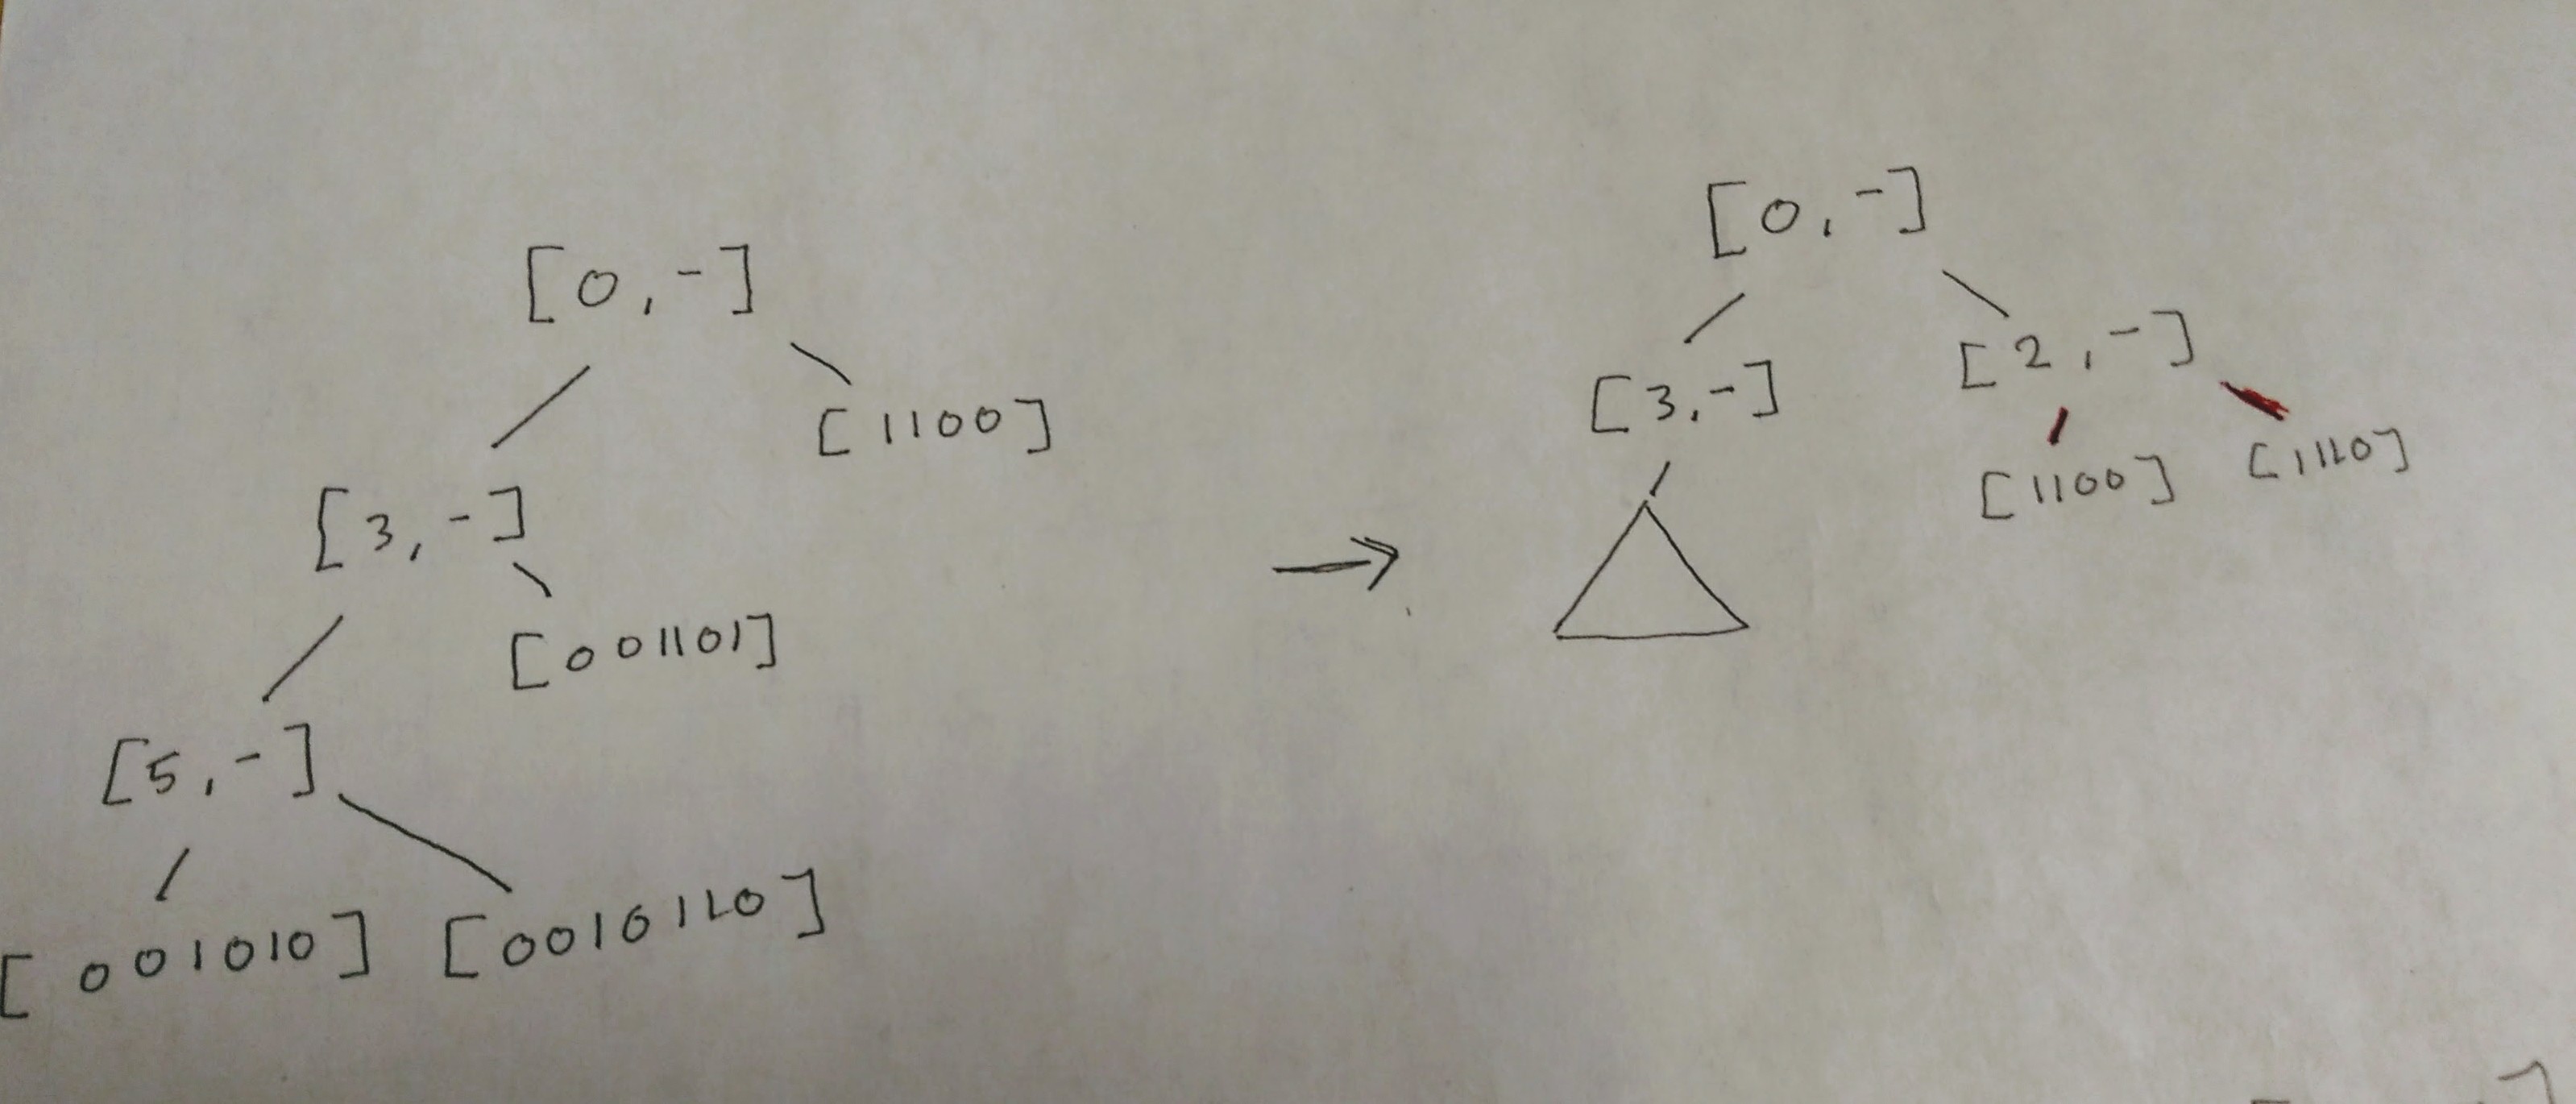 [0,-]
[3,-] [1100]
[5,-] [001101]
[001010] [0010110]
→
[0,-]
[3,-] [2,-]
[1100] [1110]